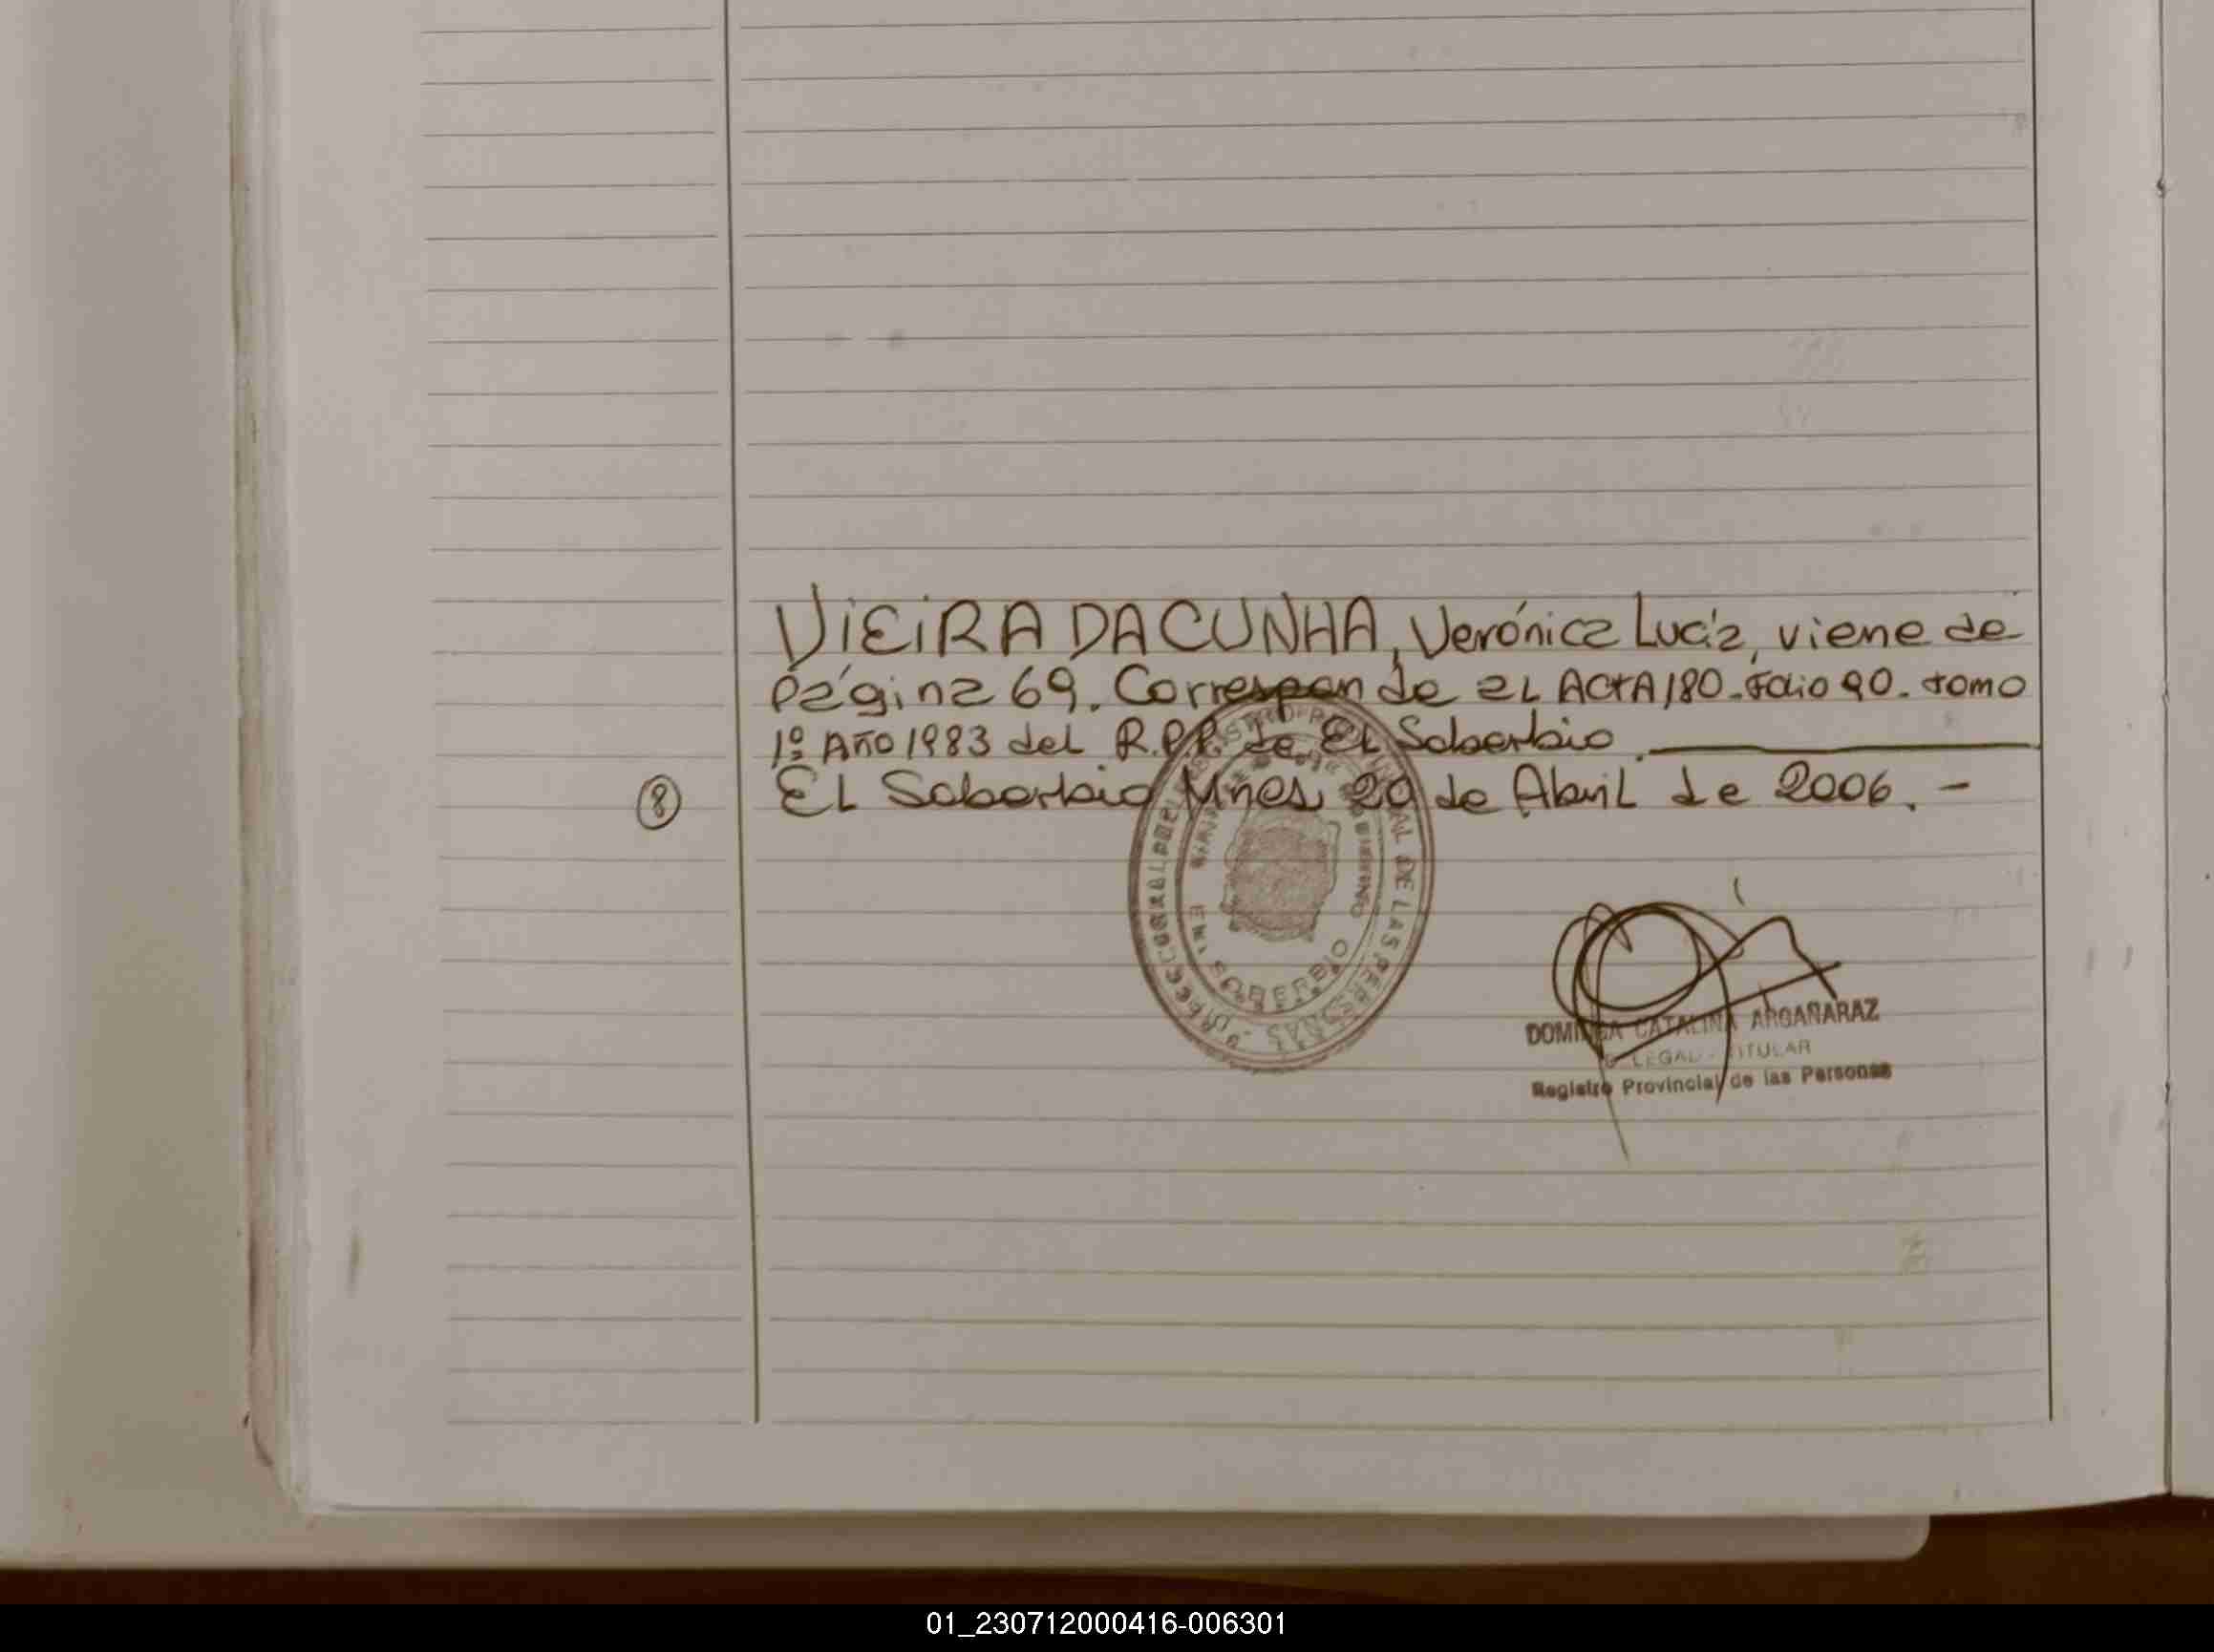 VIEIRA DA CUNHA, Verónica Lucía, viene de
página 69. Corresponde al ACTA 180. Folio 90. tomo
1º Año 1983 del R.P.P. de El Soberbio.
⑧ El Soberbio Mnes, 29 de Abril de 2006. -
REGISTRO PROVINCIAL DE LAS PERSONAS
GOBIERNO
EL SOBERBIO
DOMINGA CATALINA ARGAÑARAZ
LEGAL - TITULAR
Registro Provincial de las Personas
01_230712000416-006301